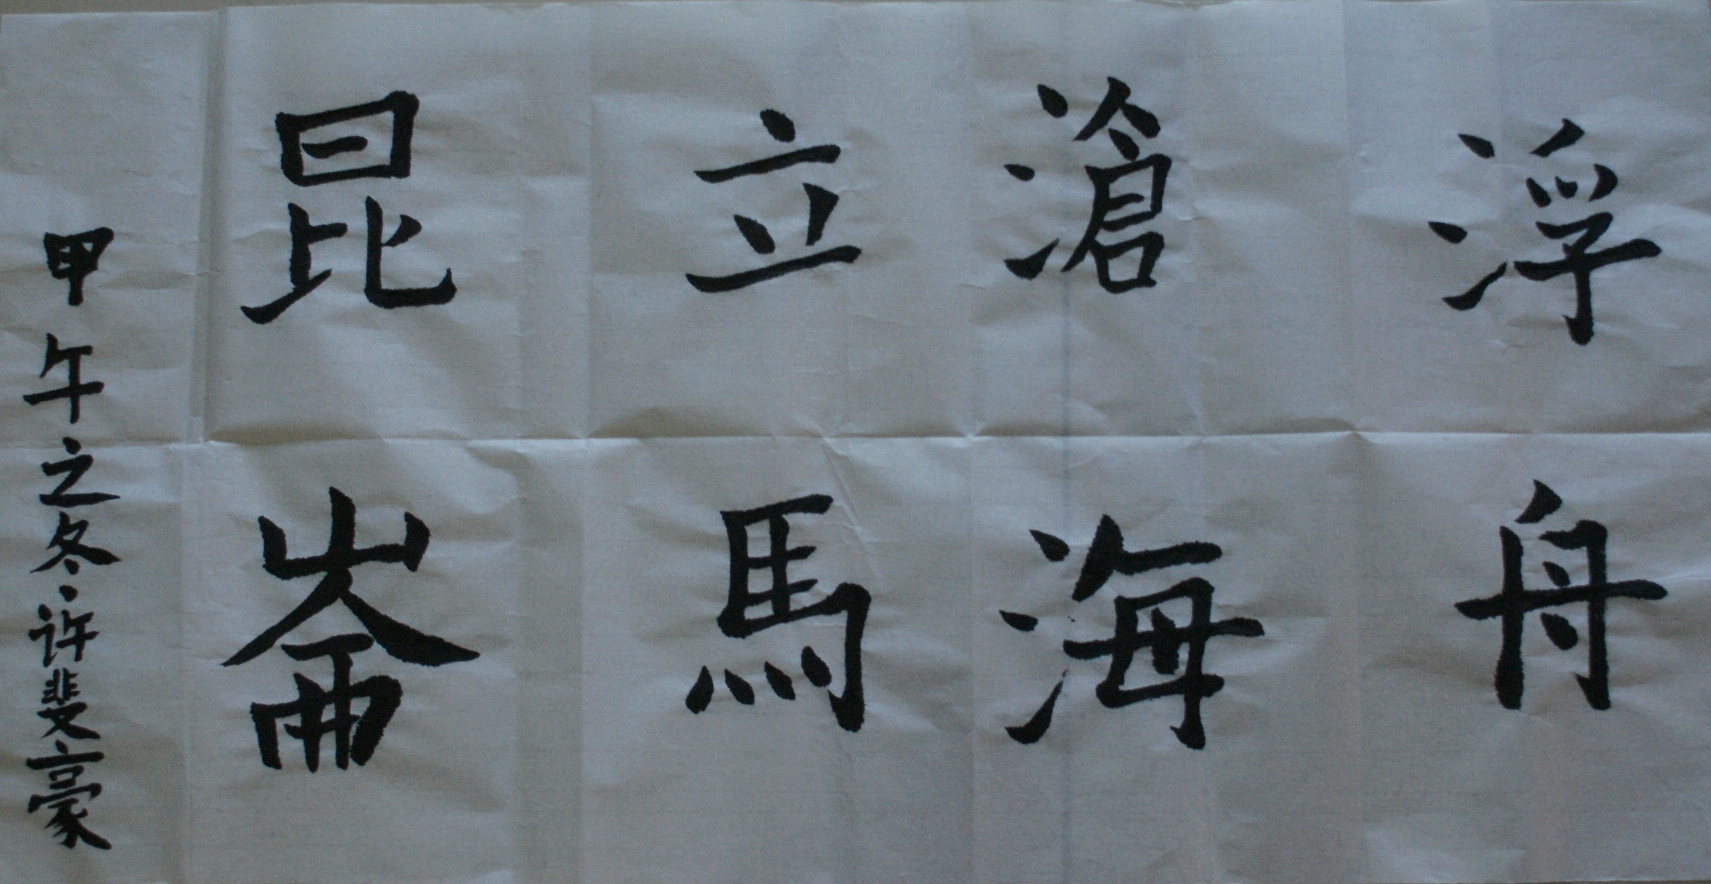 浮舟
滄海
立馬
昆崙
甲午之冬·许斐豪